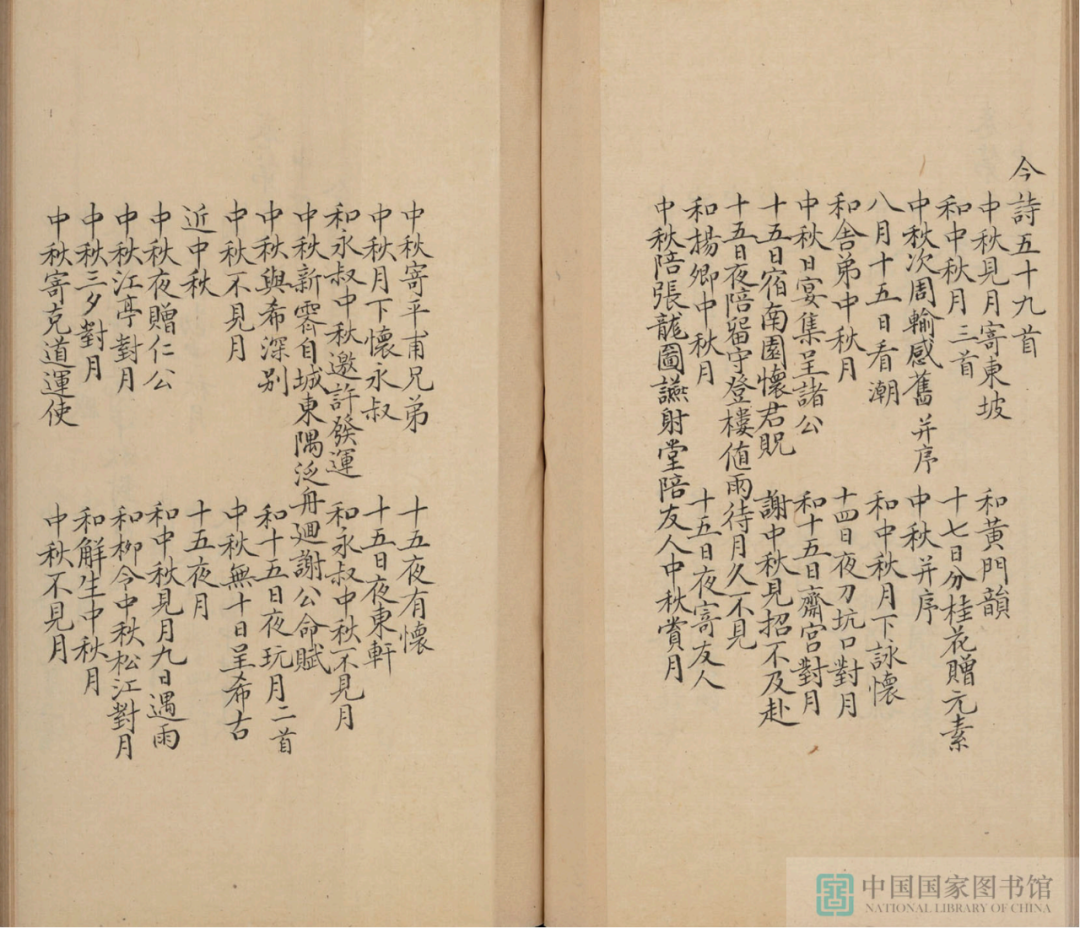 今詩五十九首
中秋見月寄東坡 和黃門韻
和中秋月三首 十七日分桂花贈元素
中秋次周輸感舊并序 中秋并序
八月十五日看潮 和中秋月下詠懷
和舍弟中秋月 十四日夜刀坑口對月
中秋日宴集呈諸公 和十五日齋宮對月
十五日宿南園懷君貺 謝中秋見招不及赴
十五日夜陪留守登樓值雨待月久不見
和楊卿中秋月 十五日夜寄友人
中秋陪張龍圖讌射堂陪友人中秋賞月
中秋寄平甫兄弟 十五夜有懷
中秋月下懷永叔 十五日夜東軒
和永叔中秋邀許發運 和永叔中秋不見月
中秋新霽自城東隅泛舟迴謝公命賦
中秋與希深别 和十五日夜玩月二首
中秋不見月 中秋無十日呈希古
近中秋 十五夜月
中秋夜贈仁公 和中秋見月九日遇雨
中秋江亭對月 和柳令中秋松江對月
中秋三夕對月 和解生中秋月
中秋寄克道運使 中秋不見月
中国国家图书馆
NATIONAL LIBRARY OF CHINA